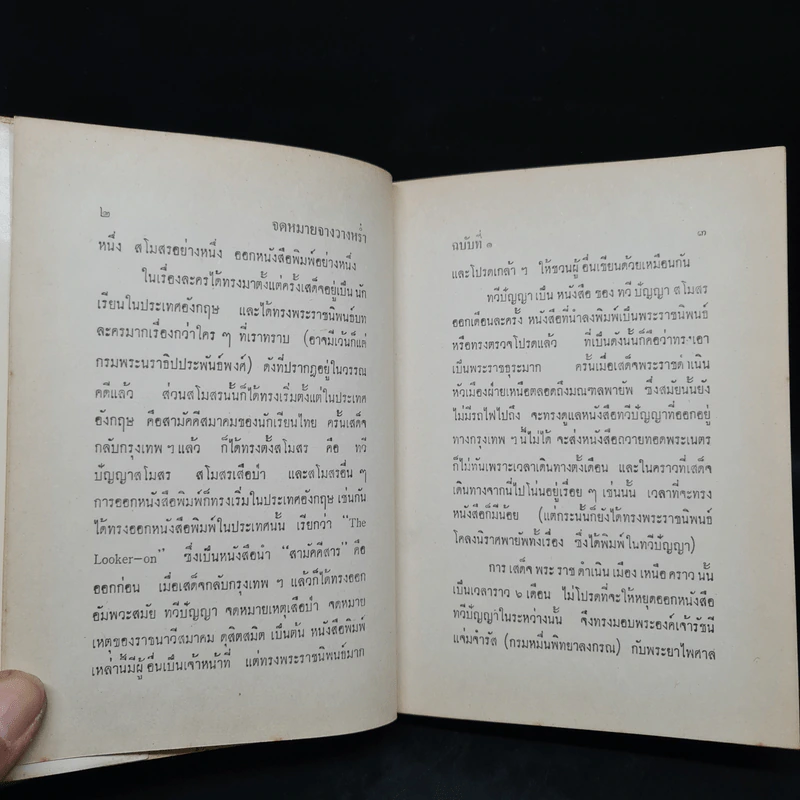 ๒
จดหมายจางวางหร่ำ
หนึ่ง สโมสรอย่างหนึ่ง ออกหนังสือพิมพ์อย่างหนึ่ง
ในเรื่องละครได้ทรงมาตั้งแต่ครั้งเสด็จอยู่เป็นนัก
เรียนในประเทศอังกฤษ และได้ทรงพระราชนิพนธ์บท
ละครมากเรื่องกว่าใคร ๆ ที่เราทราบ (อาจมีเว้นก็แต่
กรมพระนราธิปประพันธ์พงศ์) ดังที่ปรากฏอยู่ในวรรณ
คดีแล้ว ส่วนสโมสรนั้นก็ได้ทรงเริ่มตั้งแต่ในประเทศ
อังกฤษ คือสามัคคีสมาคมของนักเรียนไทย ครั้นเสด็จ
กลับกรุงเทพ ฯ แล้ว ก็ได้ทรงตั้งสโมสร คือ ทวี
ปัญญาสโมสร สโมสรเสือป่า และสโมสรอื่น ๆ
การออกหนังสือพิมพ์ก็ทรงเริ่มในประเทศอังกฤษ เช่นกัน
ได้ทรงออกหนังสือพิมพ์ในประเทศนั้น เรียกว่า "The
Looker-on" ซึ่งเป็นหนังสือนำ "สามัคคีสาร" คือ
ออกก่อน เมื่อเสด็จกลับกรุงเทพ ฯ แล้วก็ได้ทรงออก
อัมพวะสมัย ทวีปัญญา จดหมายเหตุเสือป่า จดหมาย
เหตุของราชนาวีสมาคม ดุสิตสมิต เป็นต้น หนังสือพิมพ์
เหล่านี้มีผู้อื่นเป็นเจ้าหน้าที่ แต่ทรงพระราชนิพนธ์มาก
ฉบับที่ ๑
๓
และโปรดเกล้า ฯ ให้ชวนผู้อื่นเขียนด้วยเหมือนกัน
ทวีปัญญาเป็น หนังสือ ของ ทวีปัญญา สโมสร
ออกเดือนละครั้ง หนังสือที่นำลงพิมพ์เป็นพระราชนิพนธ์
หรือทรงตรวจโปรดแล้ว ที่เป็นดังนั้นก็คือว่าทรงเอา
เป็นพระราชธุระมาก ครั้นเมื่อเสด็จพระราชดำเนิน
หัวเมืองฝ่ายเหนือตลอดถึงมณฑลพายัพ ซึ่งสมัยนั้นยัง
ไม่มีรถไฟไปถึง จะทรงดูแลหนังสือทวีปัญญาที่ออกอยู่
ทางกรุงเทพ ฯ นี้ไม่ได้ จะส่งหนังสือถวายทอดพระเนตร
ก็ไม่ทันเพราะเวลาเดินทางตั้งเดือน และในคราวที่เสด็จ
เดินทางจากนี่ไปโน่นอยู่เรื่อย ๆ เช่นนั้น เวลาที่จะทรง
หนังสือก็มีน้อย (แต่กระนั้นก็ยังได้ทรงพระราชนิพนธ์
โคลงนิราศพายัพทั้งเรื่อง ซึ่งได้พิมพ์ในทวีปัญญา)
การ เสด็จ พระ ราช ดำเนิน เมือง เหนือ คราว นั้น
เป็นเวลาราว ๖ เดือน ไม่โปรดที่จะให้หยุดออกหนังสือ
ทวีปัญญาในระหว่างนั้น จึงทรงมอบพระองค์เจ้ารัชนี
แจ่มจำรัส (กรมหมื่นพิทยาลงกรณ) กับพระยาไพศาล